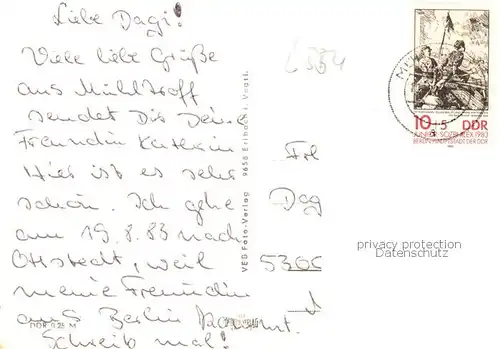 Liebe Dagi!
Viele liebe Grüße
aus Mühltroff
sendet Dir Deine
Freundin Katerin
Hier ist es sehr
schön. Ich gehe
am 19.8.83 nach
Ottstedt, weil
meine Freundin
aus Berlin kommt.
Schreib mal!
DDR 0,25 M
VEB Foto-Verlag 9658 Erlbach i. Vogtl.
10+5 DDR
JUNIOR-SOZPHILEX 1983
BERLIN-HAUPTSTADT DER DDR
Frl
Dag
5300
privacy protection
Datenschutz